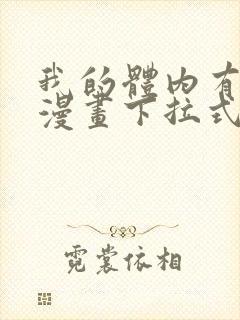 我的體内有
漫畫下拉式
霓裳依相